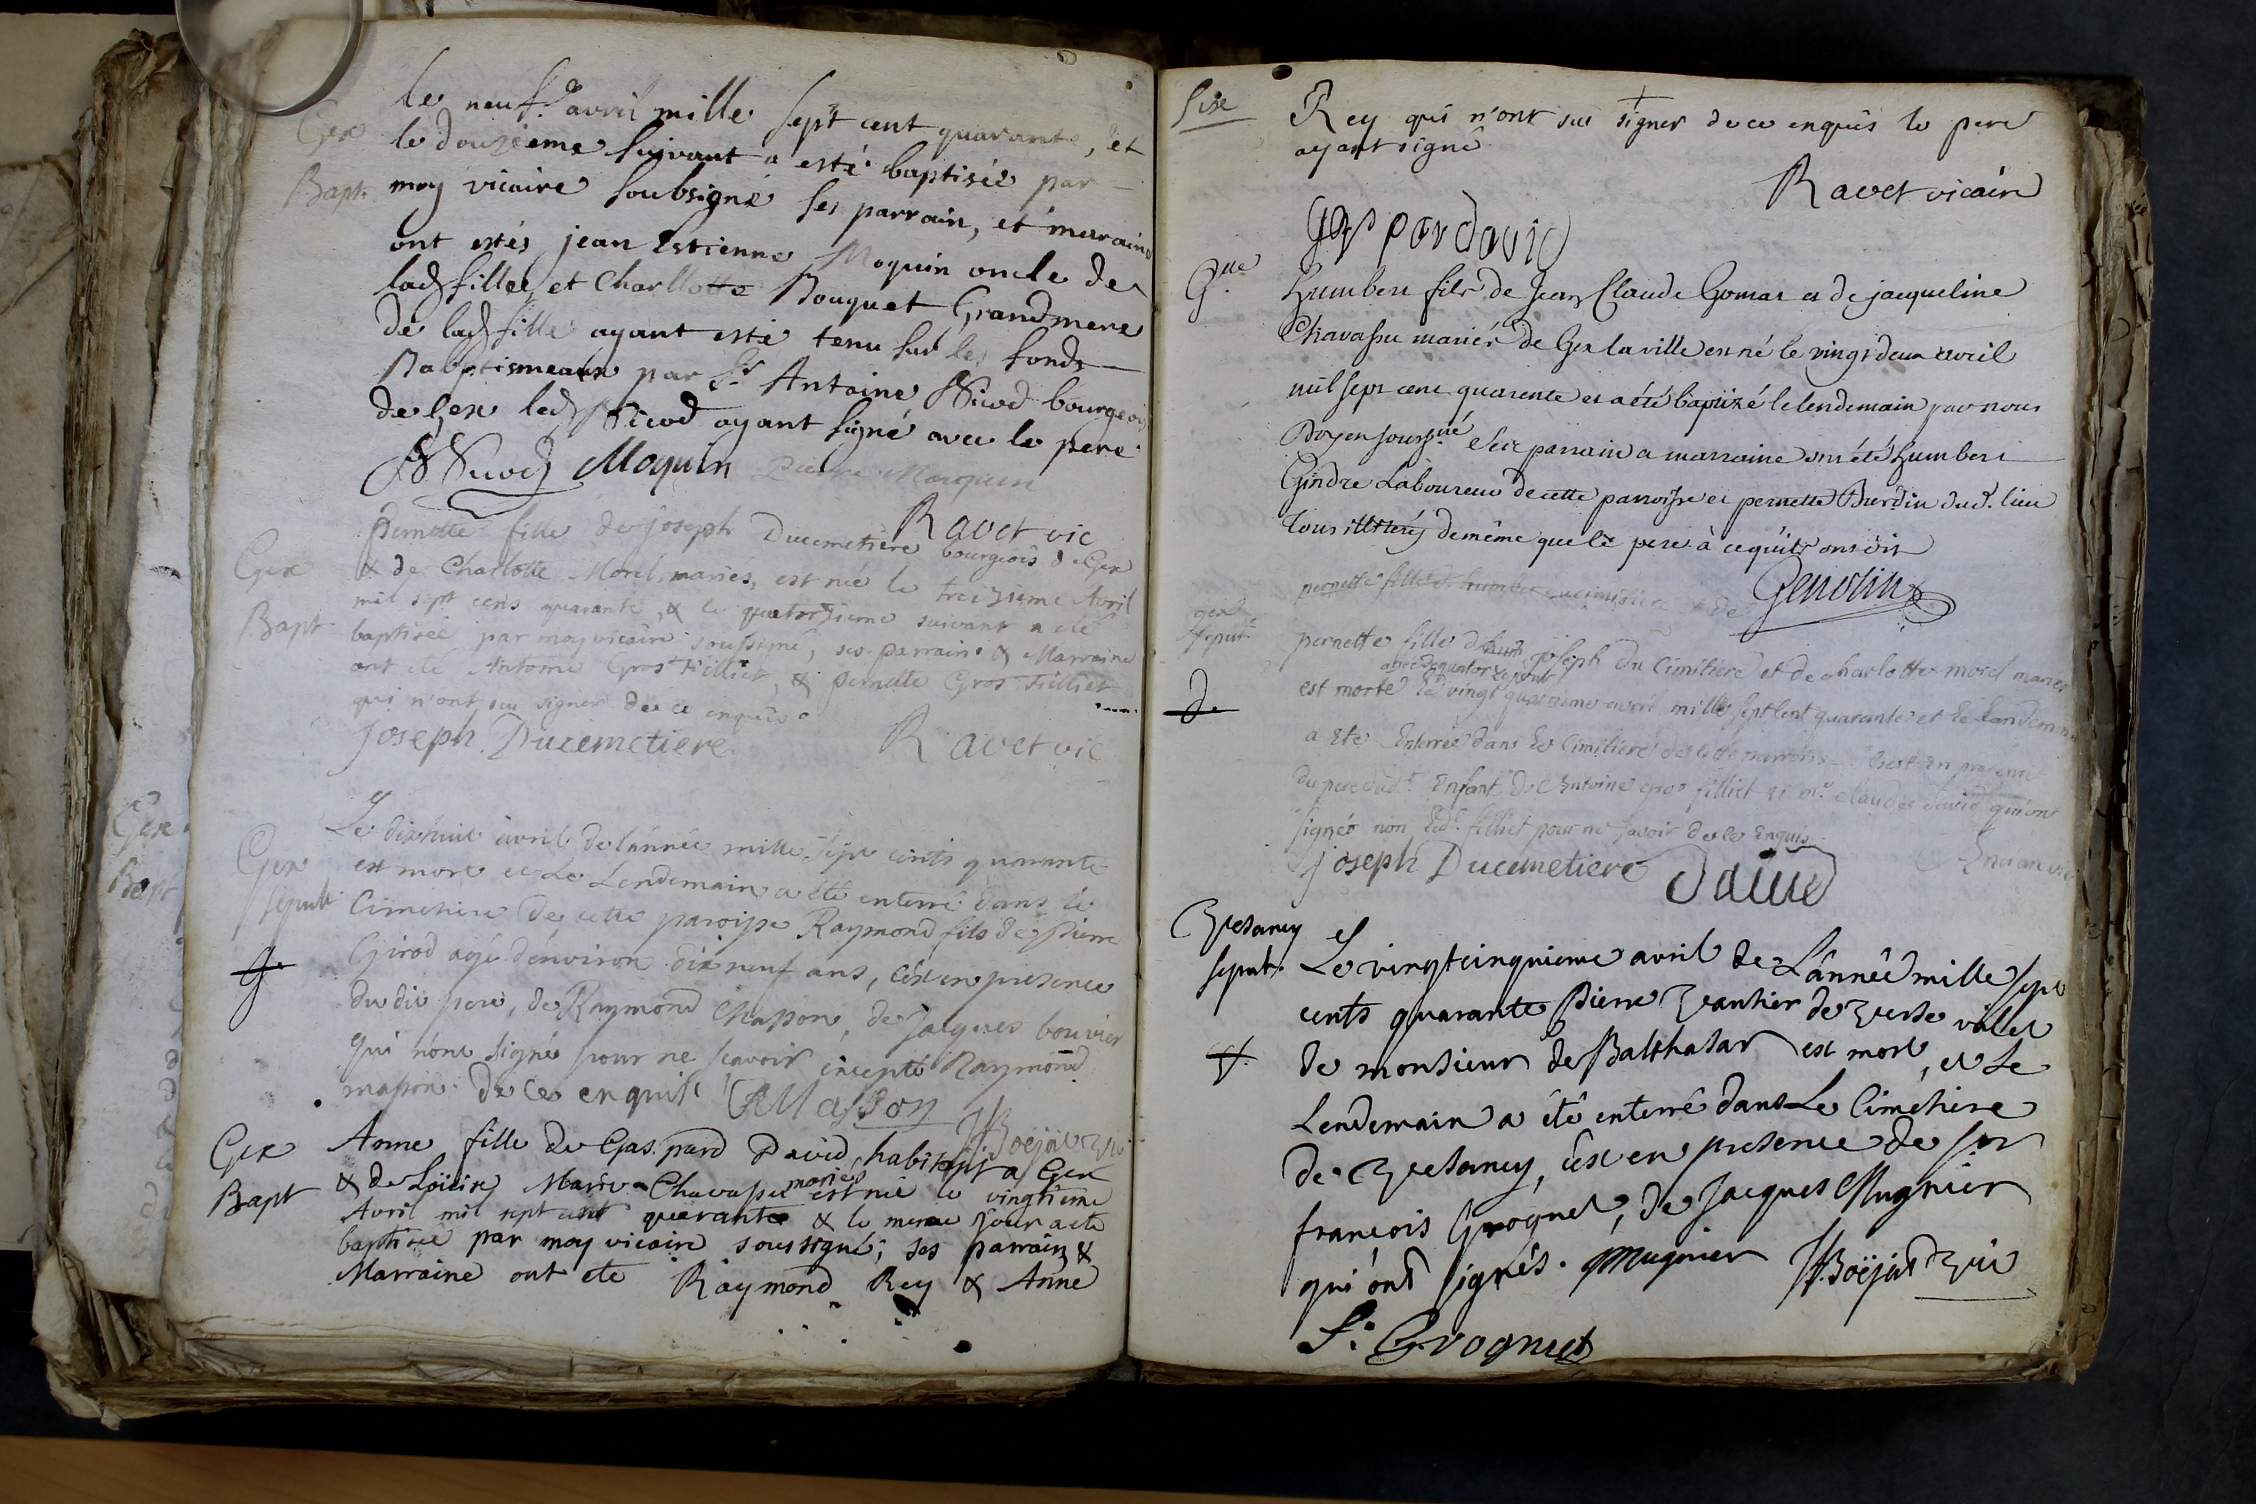 le neuf.e avril mille sept cent quarante, et
Gex
le douzieme suivant a esté baptisée par
Bapt.
moy vicaire soubsigné ses parrain, et maraine
ont estés jean Estienne Moquin oncle de
lad fille, et Charllotte Bouquet Grandmere
de lad fille ayant esté tenu sur les fonds
Baptismeaux par Sr Antoine Nicod bourgeois
de Gex led Nicod ayant signé avec le pere
Nicod Moquin Pierre Moquin
Ravet vic
Gex
Pernette fille de joseph Ducemetiere bourgeois de Gex
& de Charlotte Morel, maries, est née le treizieme Avril
mil sept cens quarante, & le quatorzieme suivant a été
Bapt
baptisée par moy vicaire soussigné, ses parrain & Marraine
ont été Antoine Gros Filliet, & pernette Gros Filliet
qui n'ont su signer de ce enquis
Joseph Ducemetiere Ravet vic
Le dixhuit avril de l'année mille sept cents quarante
Gex
est mort et Le Lendemain a été enterré dans le
sepult
Cimetiere de cette paroisse Raymond fils de Pierre
Girod agé denviron dix neuf ans, c'est en presence
du dit pere, de Raymond Masson, de Jacques bouvier
qui n'ont signé pour ne scavoir excepté Raymond
masson de ce enquis Masson
Boëjat vic
Gex
Anne fille de Gaspard David, habitant a Gex
Bapt
& de Marie Chavassu mariés est née le vingtieme
Avril mil sept cent quarante & le meme jour a eté
baptisée par moy vicaire soussigné; ses parrain &
Marraine ont été Raymond Rey & Anne
Rey qui n'ont su signer de ce enquis le pere
ayant signé
Ravet vicaire
gaspar david
Humbert fils de Jean Claude Gomas et de jacqueline
Chavassu mariés de Gex la ville est né le vingt deux avril
mil sept cent quarente et a été baptizé le lendemain par nous
Doyen souss.né Ses parrain et marraine ont été humbert
Gindre Laboureur de cette parroisse et pernette Burdin dud. lieu
tous illiterés de même que le pere à ce qu'ils ont dit
pernette fille d. humbert ducimitiere et de
Genolin
gex
sepult.
pernette fille d joseph du Cimitiere et de charlotte morel maries
agée de quatorze jours
est morte le vingt quatrieme avril mille sept cent quarante et le landemain
a Ete Enterrée dans le Cimitiere de cette parroisse C'est en presence
du pere dud.t Enfant d'Antoine gros filliet et m.e claude david qui ont
signés non led.t filliet pour ne savoir de ce Enquis
joseph Ducemetiere David
Vesancy
sepult.
Le vingtcinquieme avril de L'année mille sept
cents quarante Pierre Vautier de Verse valet
de monsieur de Balthasar est mort, et Le
Lendemain a été enterré dans Le Cimetiere
de Vesancy, c'est en presence de Sr
françois Grognet, de Jacques Mugnier
qui ont signés. Mugnier Boëjat vic
f. Grognet